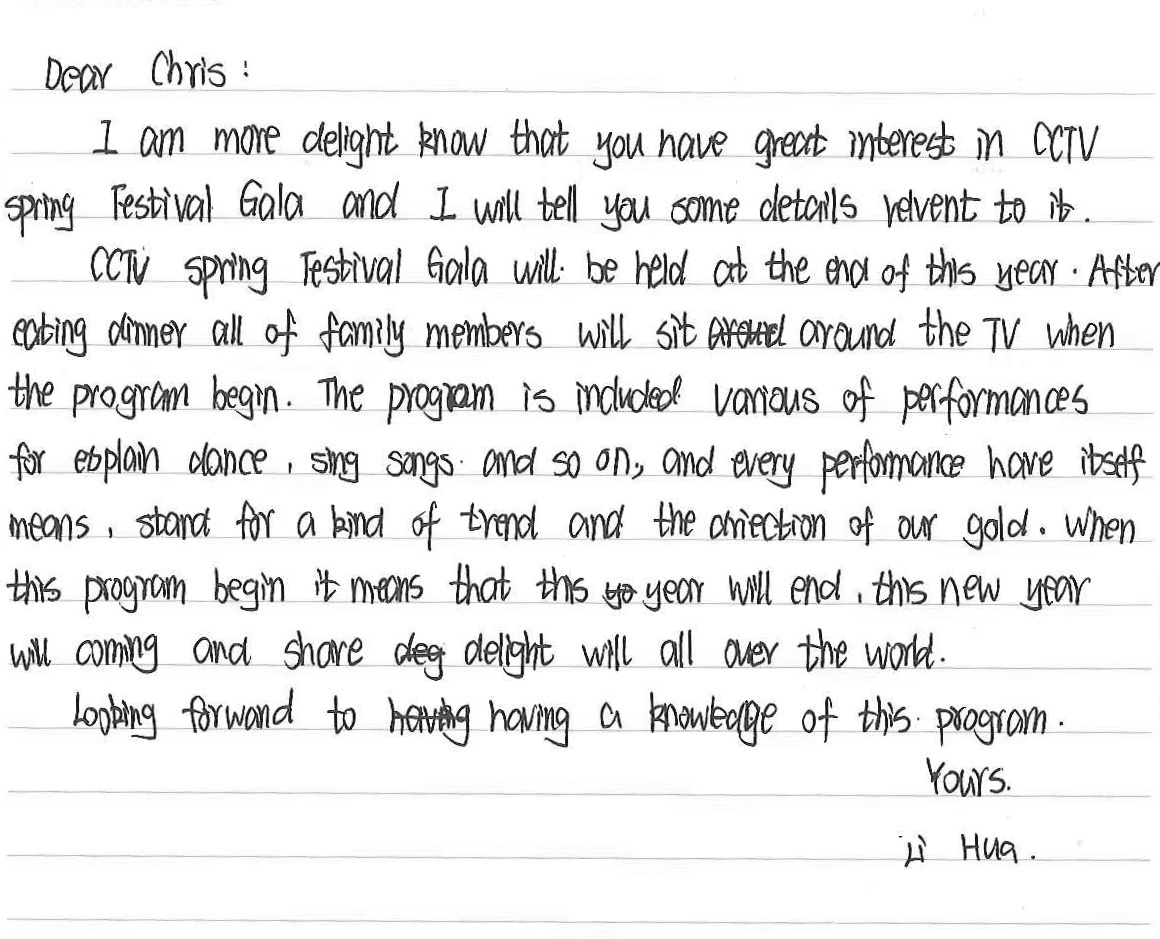 Dear Chris:
I am more delight know that you have great interest in CCTV
spring Festival Gala and I will tell you some details relvent to it.
CCTV spring Festival Gala will be held at the end of this year. After
eating dinner all of family members will sit around around the TV when
the program begin. The program is included various of performances
for explain dance, sing songs and so on, and every performance have itself
means, stand for a kind of trend and the direction of our gold. When
this program begin it means that this ye year will end, this new year
will coming and share deg delight will all over the world.
Looking forward to having having a knowledge of this program.
Yours.
Li Hua.